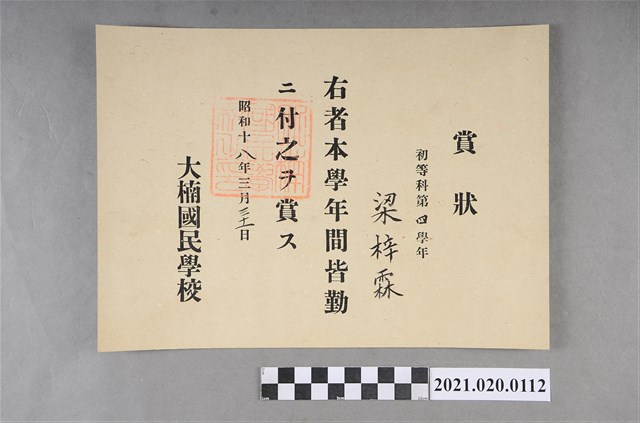 賞狀
初等科第四學年
梁梓霖
右者本學年間皆勤
ニ付之ヲ賞ス
昭和十八年三月三十一日
大楠國民學校
2021.020.0112